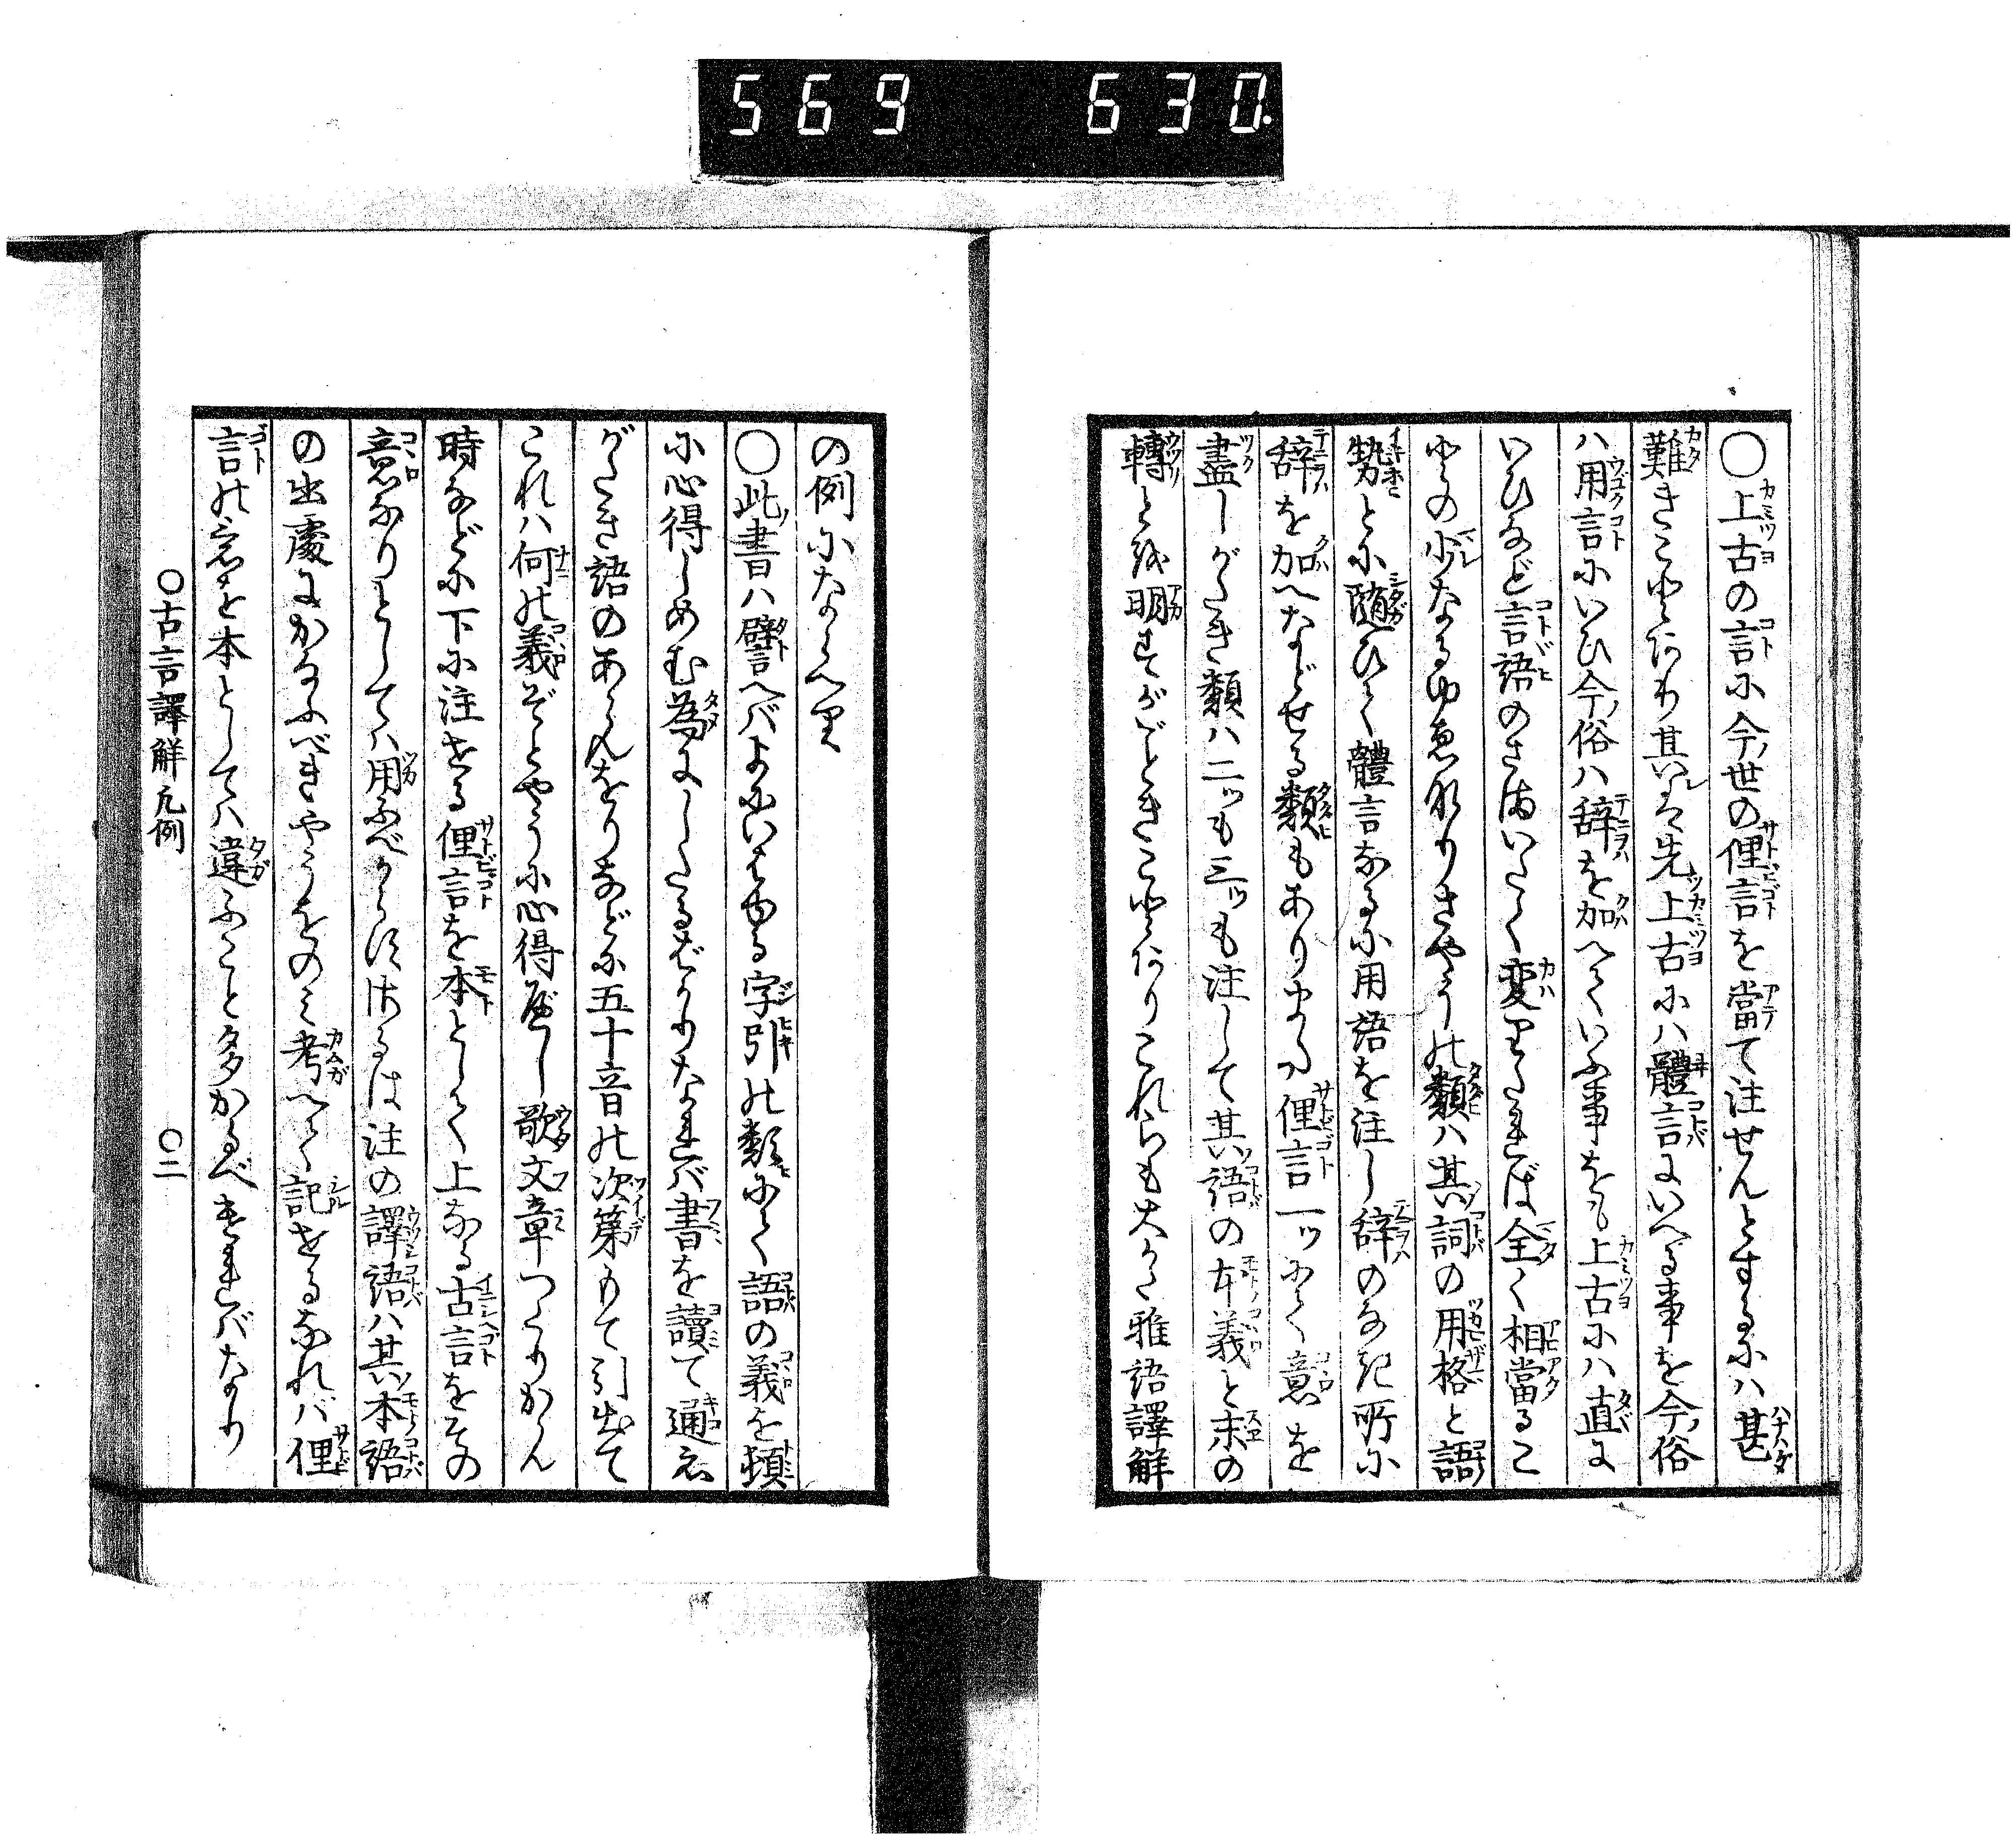 569 630
〇上古の言に今ノ世の俚言を當て注せんとするには甚
難きことにあり其ハまづ先上古にハ體言にいへる事を今ノ俗
ハ用言にいひ今ノ俗ハ辞を加へていふ事をも上古にハ直に
いひなど言語のさまいたく変りたれば全く相當るこ
との少なるゆゑなりさやうの類ハ其詞の用格と語
勢とに随ひて體言なるに用語を注し辞のなき所に
辞を加へなどせる類もあり又ハ俚言一ッにて意を
盡しがたき類ハ二ッも三ッも注して其語の本義と末の
轉とを明すがごときことありこれらも大かた雅語譯解
の例にならへり
〇此ノ書ハ譬言へバよにいはゆる字引の類にて語の義を頓
に心得しめむ為にしたるばかりなれバ書を讀て通え
がたき語のあらんをりなどに五十音の次第もて引出て
これハ何の義ぞとやうに心得べし歌文章つくりかゝん
時などに下に注せる俚言を本として上なる古言をその
意なりとしてハ用ふべからずさるは注の譯語ハ其本語
の出處にかなふべきやうをのミ考へて記せるなれバ俚
言の意を本としてハ違ふこと多かるべけれバなり
〇古言譯解凡例 〇二